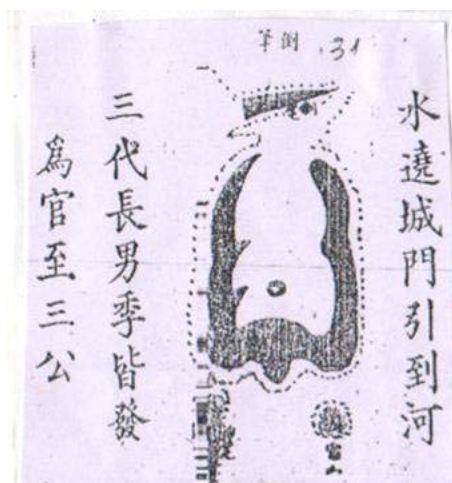 筆倒 .31
水遶城門引到河
三代長男季皆發
為官至三公